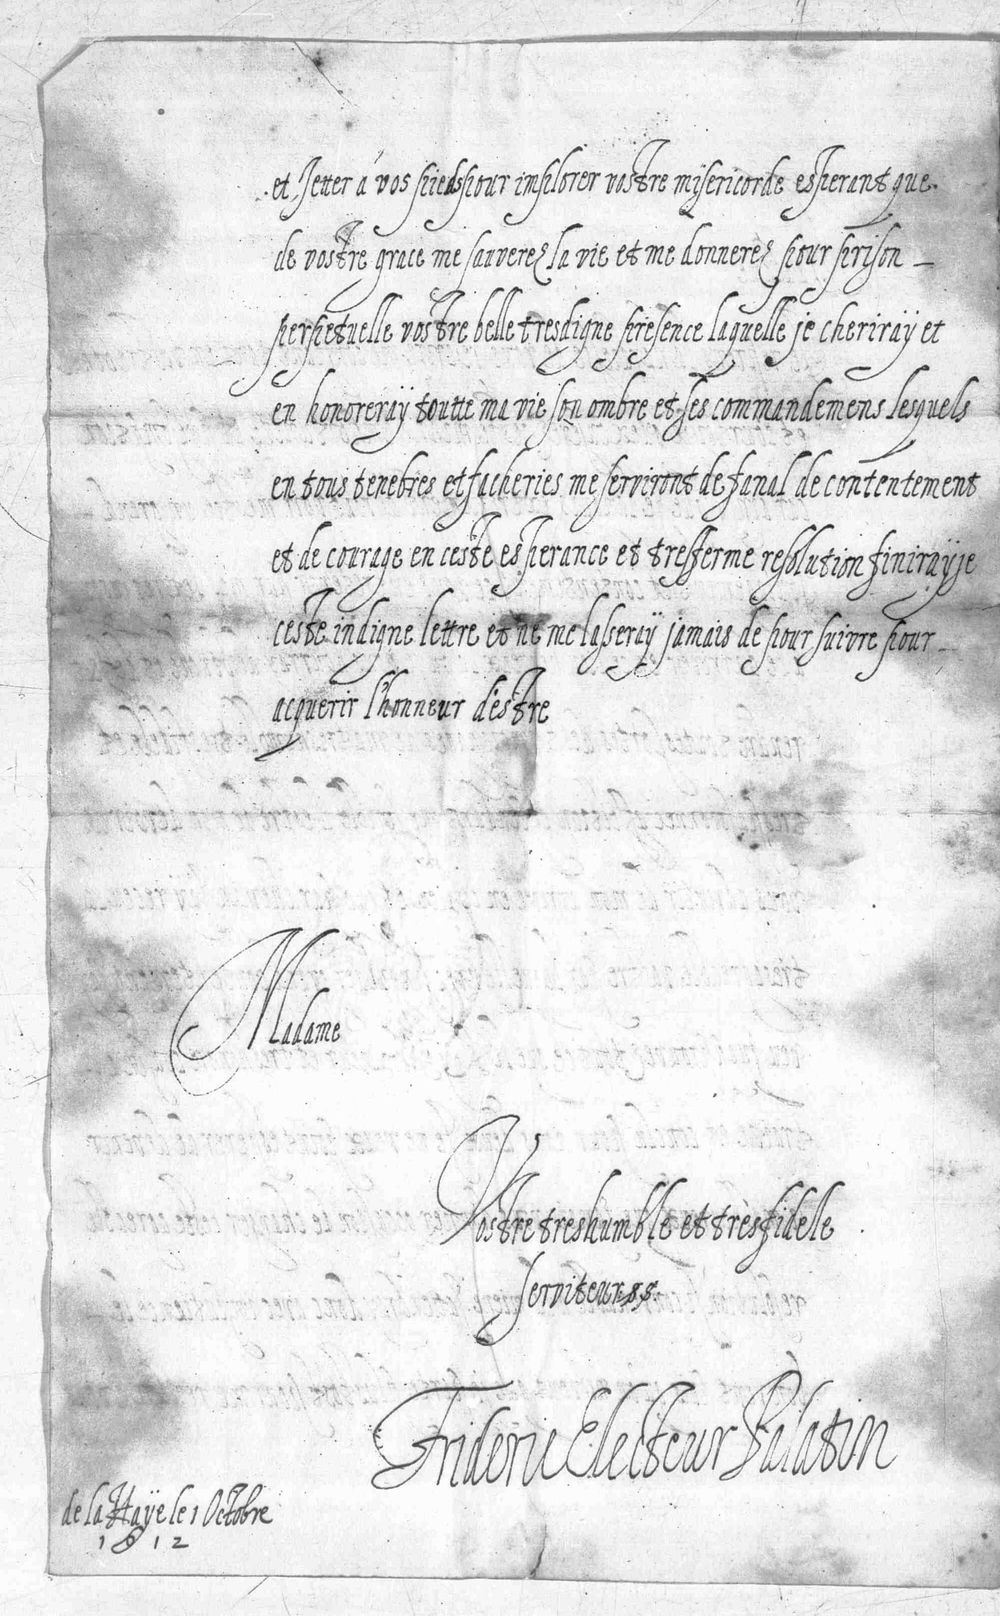 et Jetter a vos pieds pour implorer vostre misericorde esperant que
de vostre grace me sauverez la vie et me donnerez pour prison
perpetuelle vostre belle tresdigne presence laquelle je cheriraÿ et
en honoreraÿ toutte ma vie son ombre et ses commandemens lesquels
en tous tenebres et facheries me serviront de fanal de contentement
et de courage en ceste esperance et tresferme resolution finiraÿ je
ceste indigne lettre et ne me lasseraÿ jamais de poursuivre pour
acquerir l'honneur d'estre
Madame
Vostre treshumble et tresfidele
serviteur
Frideric Electeur Palatin
de la Haÿe le 1 Octobre
1612